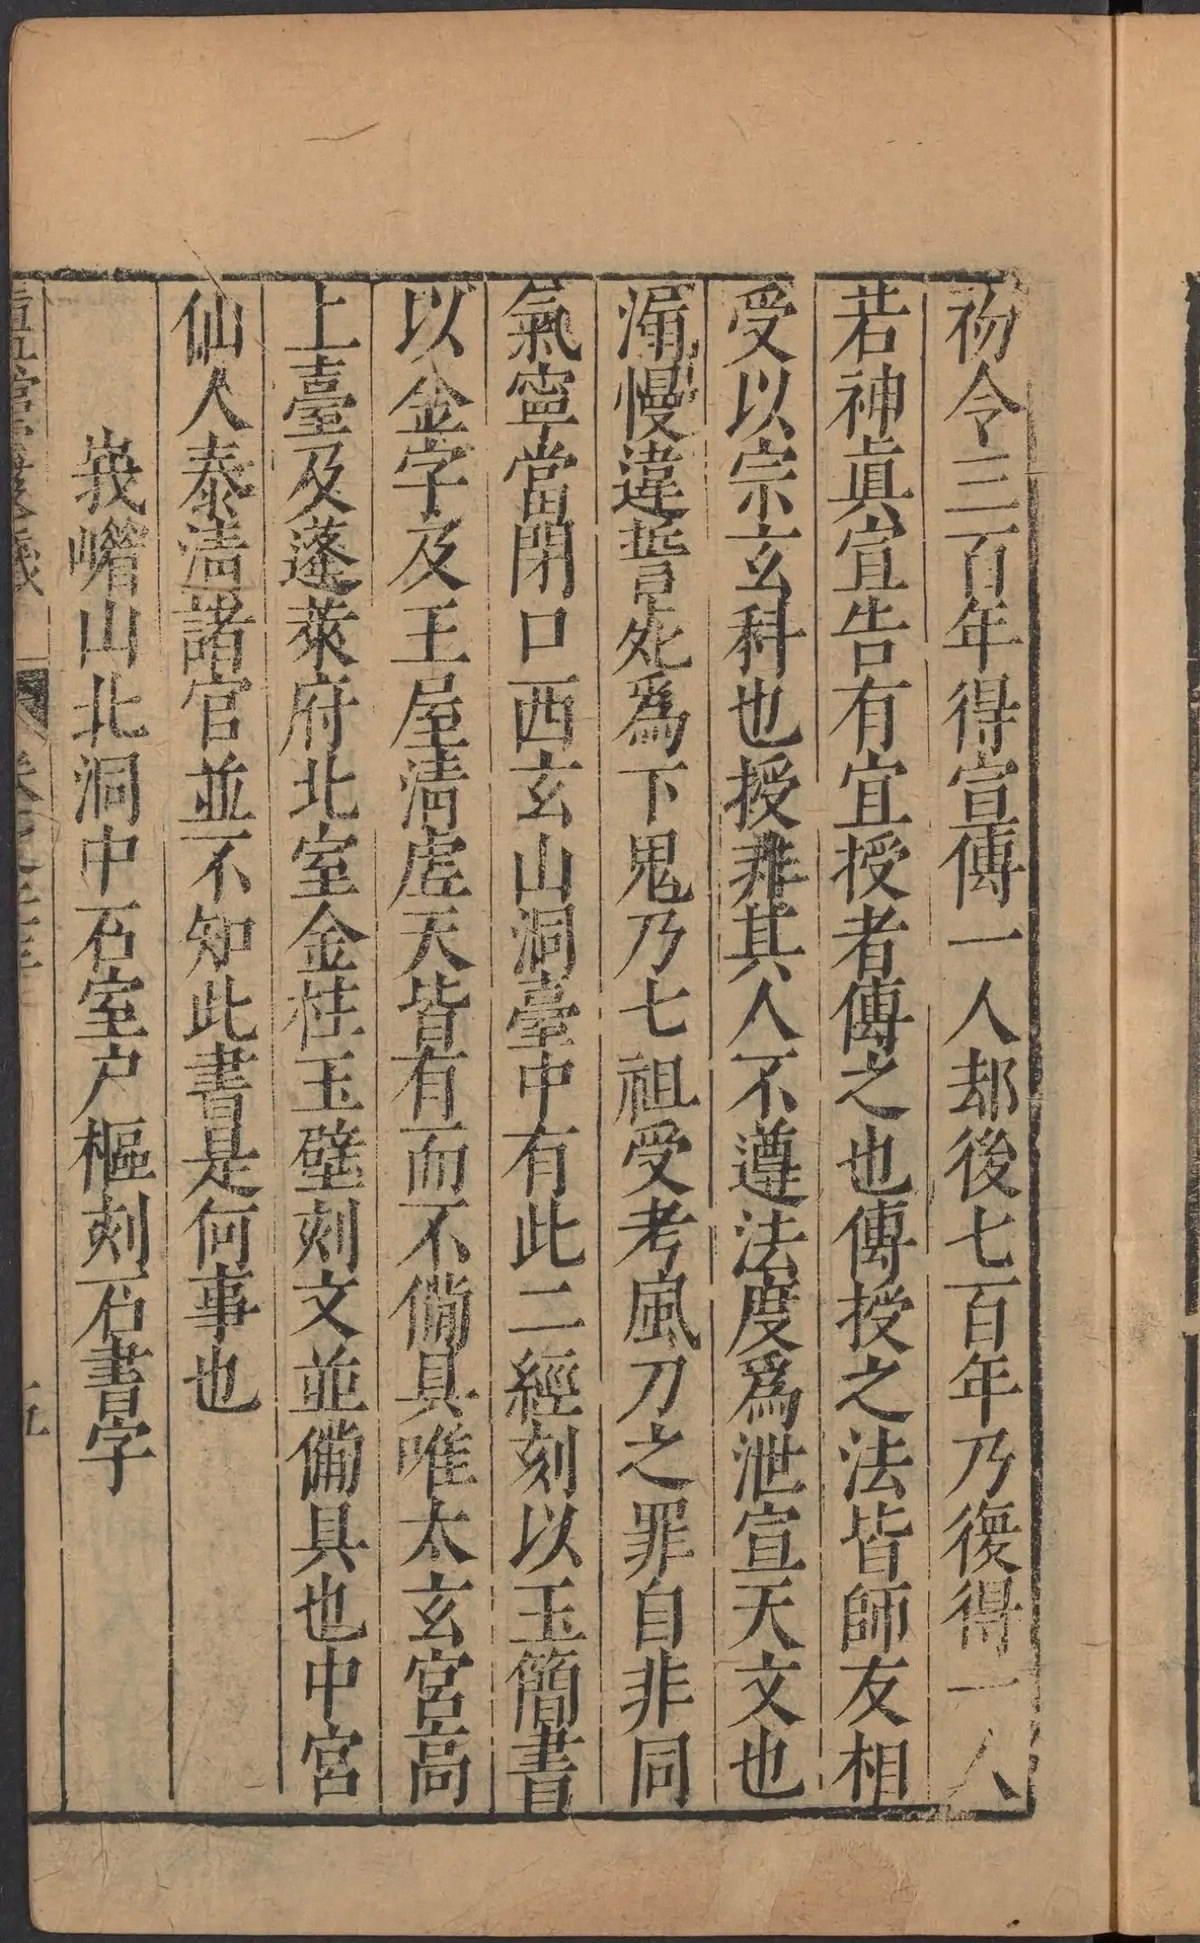 礽令三百年得宣傳一人却後七百年乃復得一人
若神眞宣告有宜授者傳之也傳授之法皆師友相
受以宗玄科也授非其人不遵法度爲泄宣天文也
漏慢違誓死爲下鬼乃七祖受考風刀之罪自非同
氣寧當閉口西玄山洞臺中有此二經刻以玉簡書
以金字及王屋淸虗天皆有而不備具唯太玄宮高
上臺及蓬萊府北室金柱玉壁刻文並備具也中宮
仙人泰淸諸官並不知此書是何事也
峩嵋山北洞中石室户樞刻石書字
五